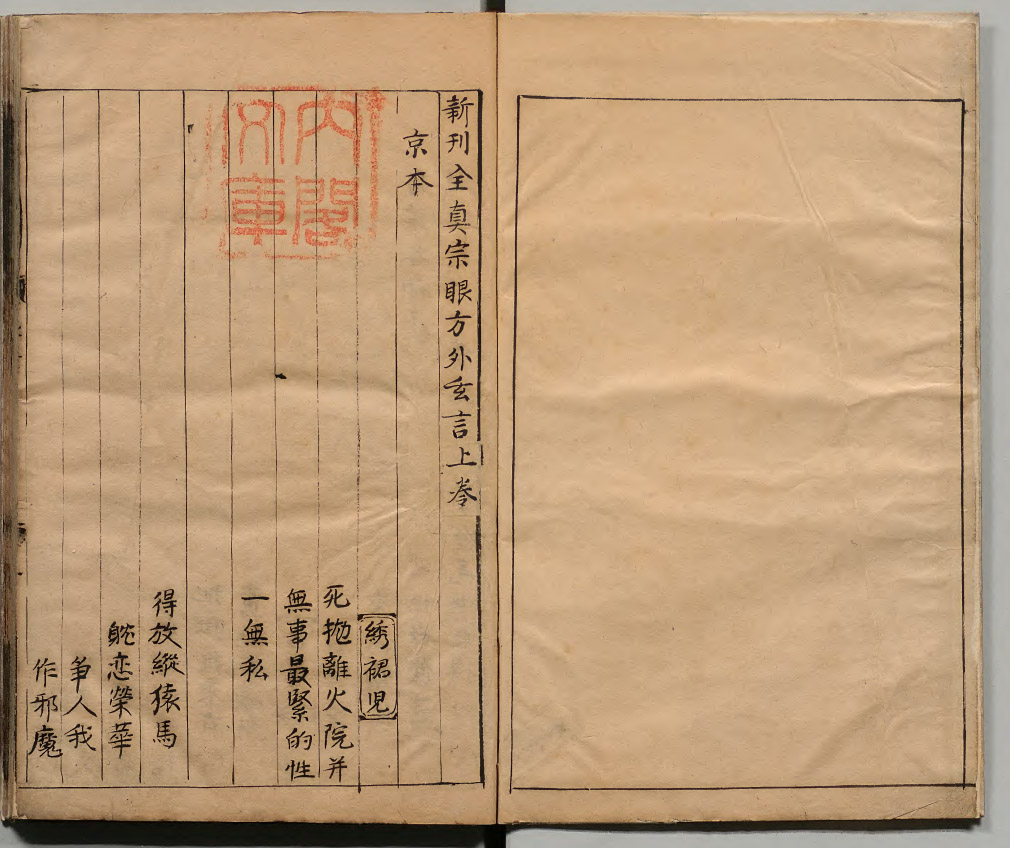 新刊全真宗眼方外玄言上卷
京本
綉裙児
死抛離火院并
無事最緊的性
一無私
得放縱猿馬
躭恋榮華
争人我
作邪魔
內閣文庫